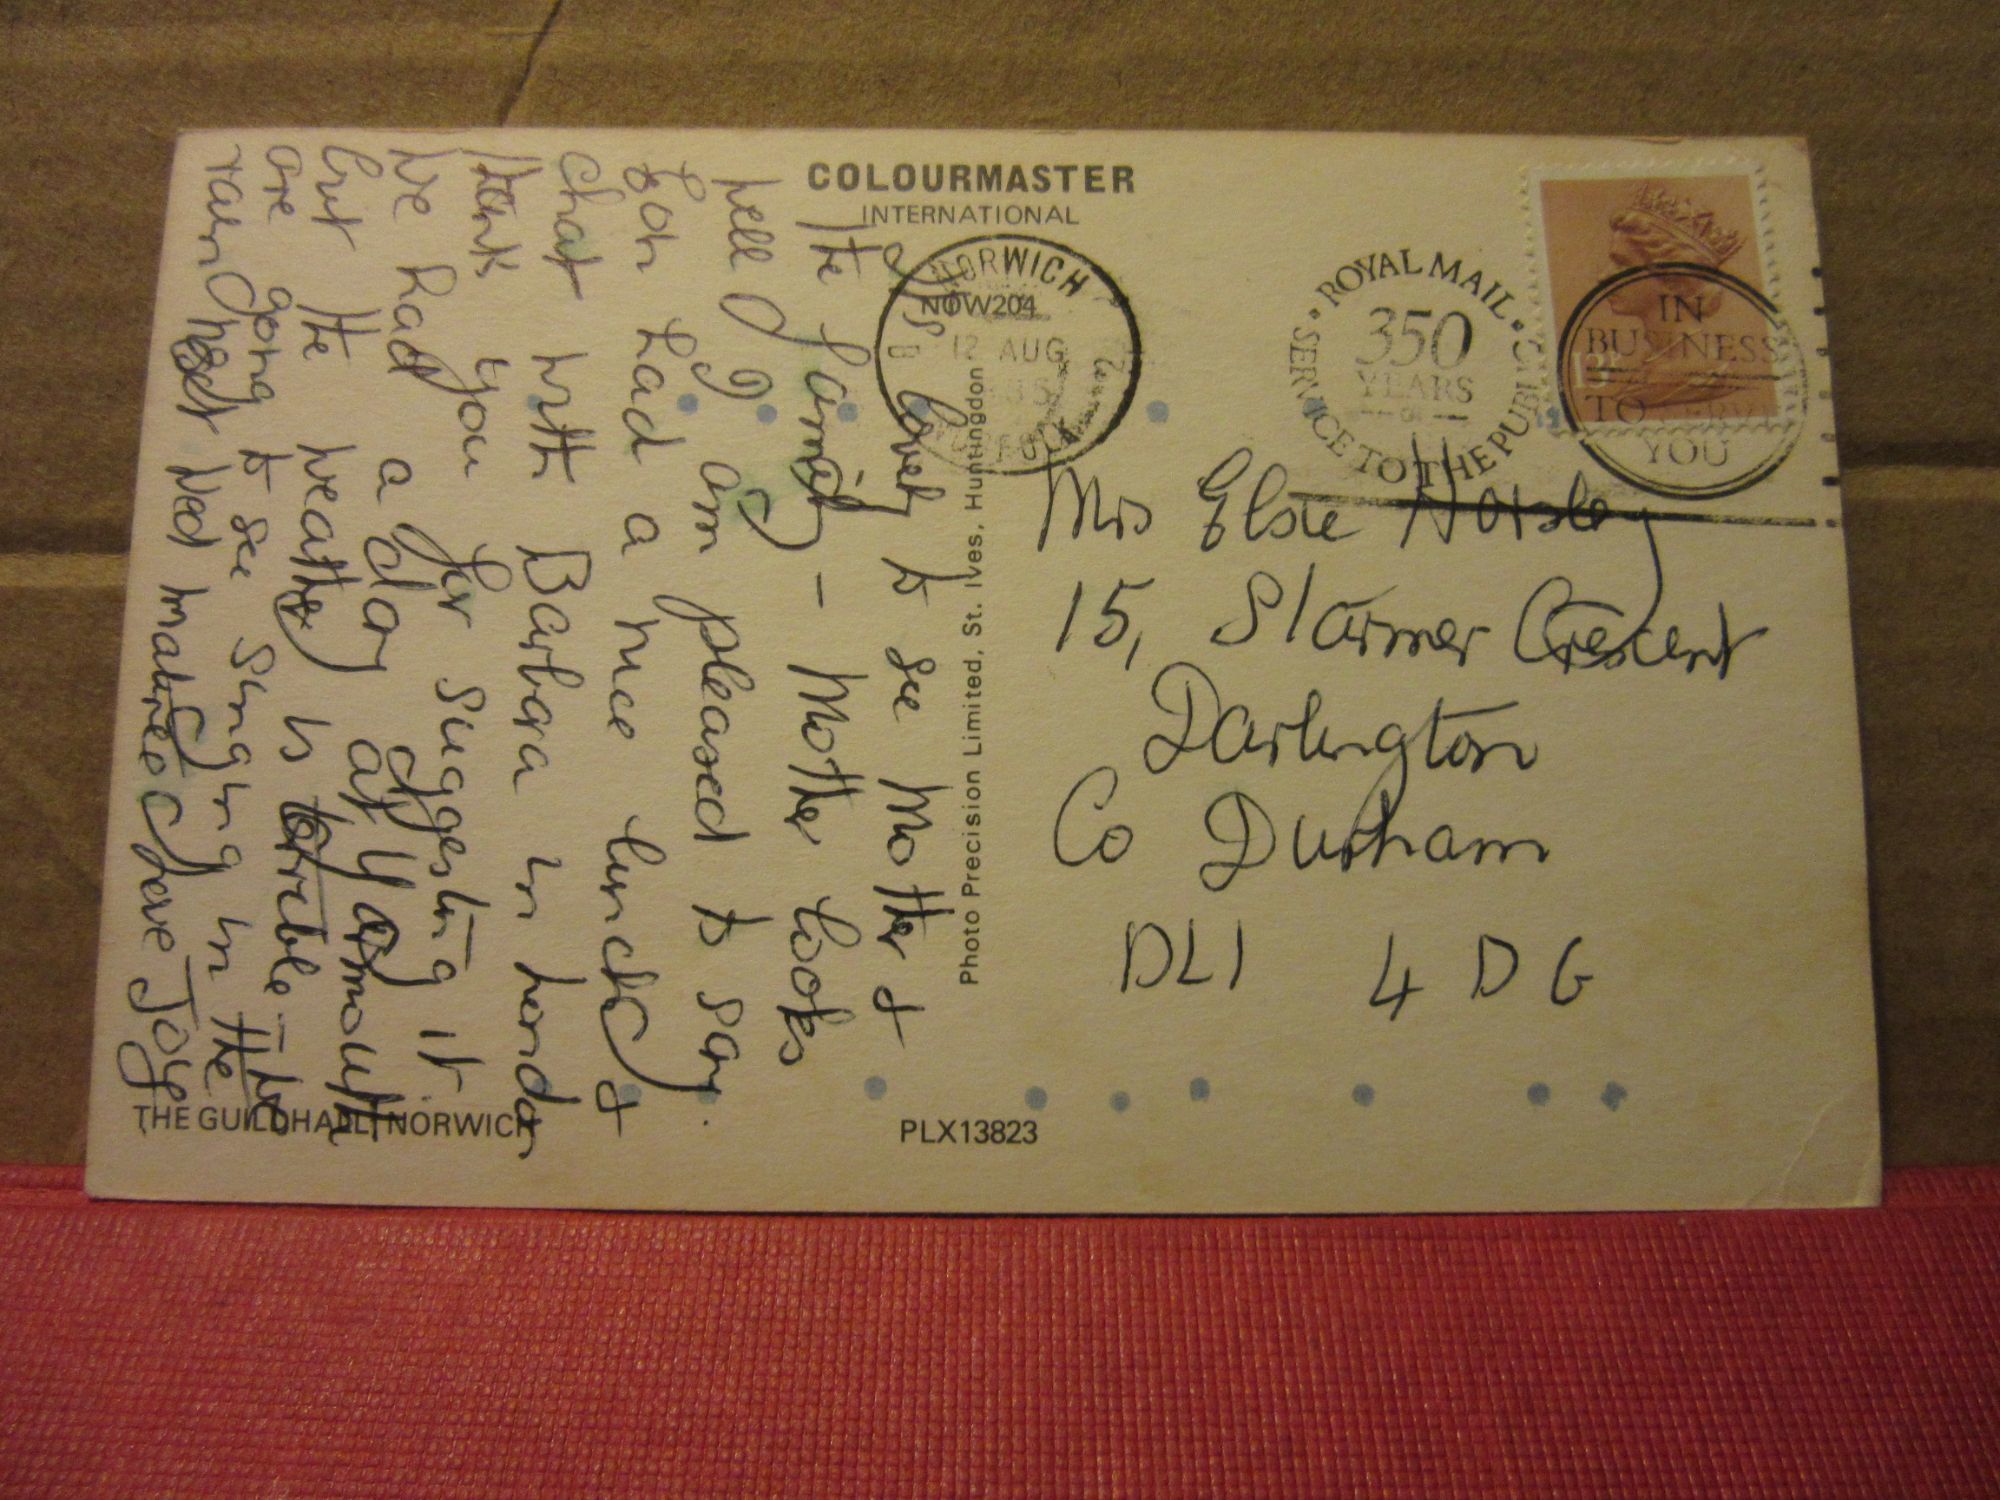 COLOURMASTER
INTERNATIONAL
NORWICH
NOW204
12 AUG
NORFOLK
ROYAL MAIL
350
YEARS
SERVICE TO THE PUBLIC
IN
BUSINESS
TO SERVE
YOU
13
It's lovely to see Mother &
the family – Mother looks
well I am pleased to say.
Jon had a nice lunch &
chat with Barbara in London
thank you for suggesting it
We had a day at Yarmouth
but the weather is terrible – we
are going to see Singing in the
rain next Wed matinee Love Joye
Photo Precision Limited, St. Ives, Huntingdon
Mrs Elsie Horsley
15, Starmer Crescent
Darlington
Co Durham
DL1 4DG
THE GUILDHALL, NORWICH
PLX13823